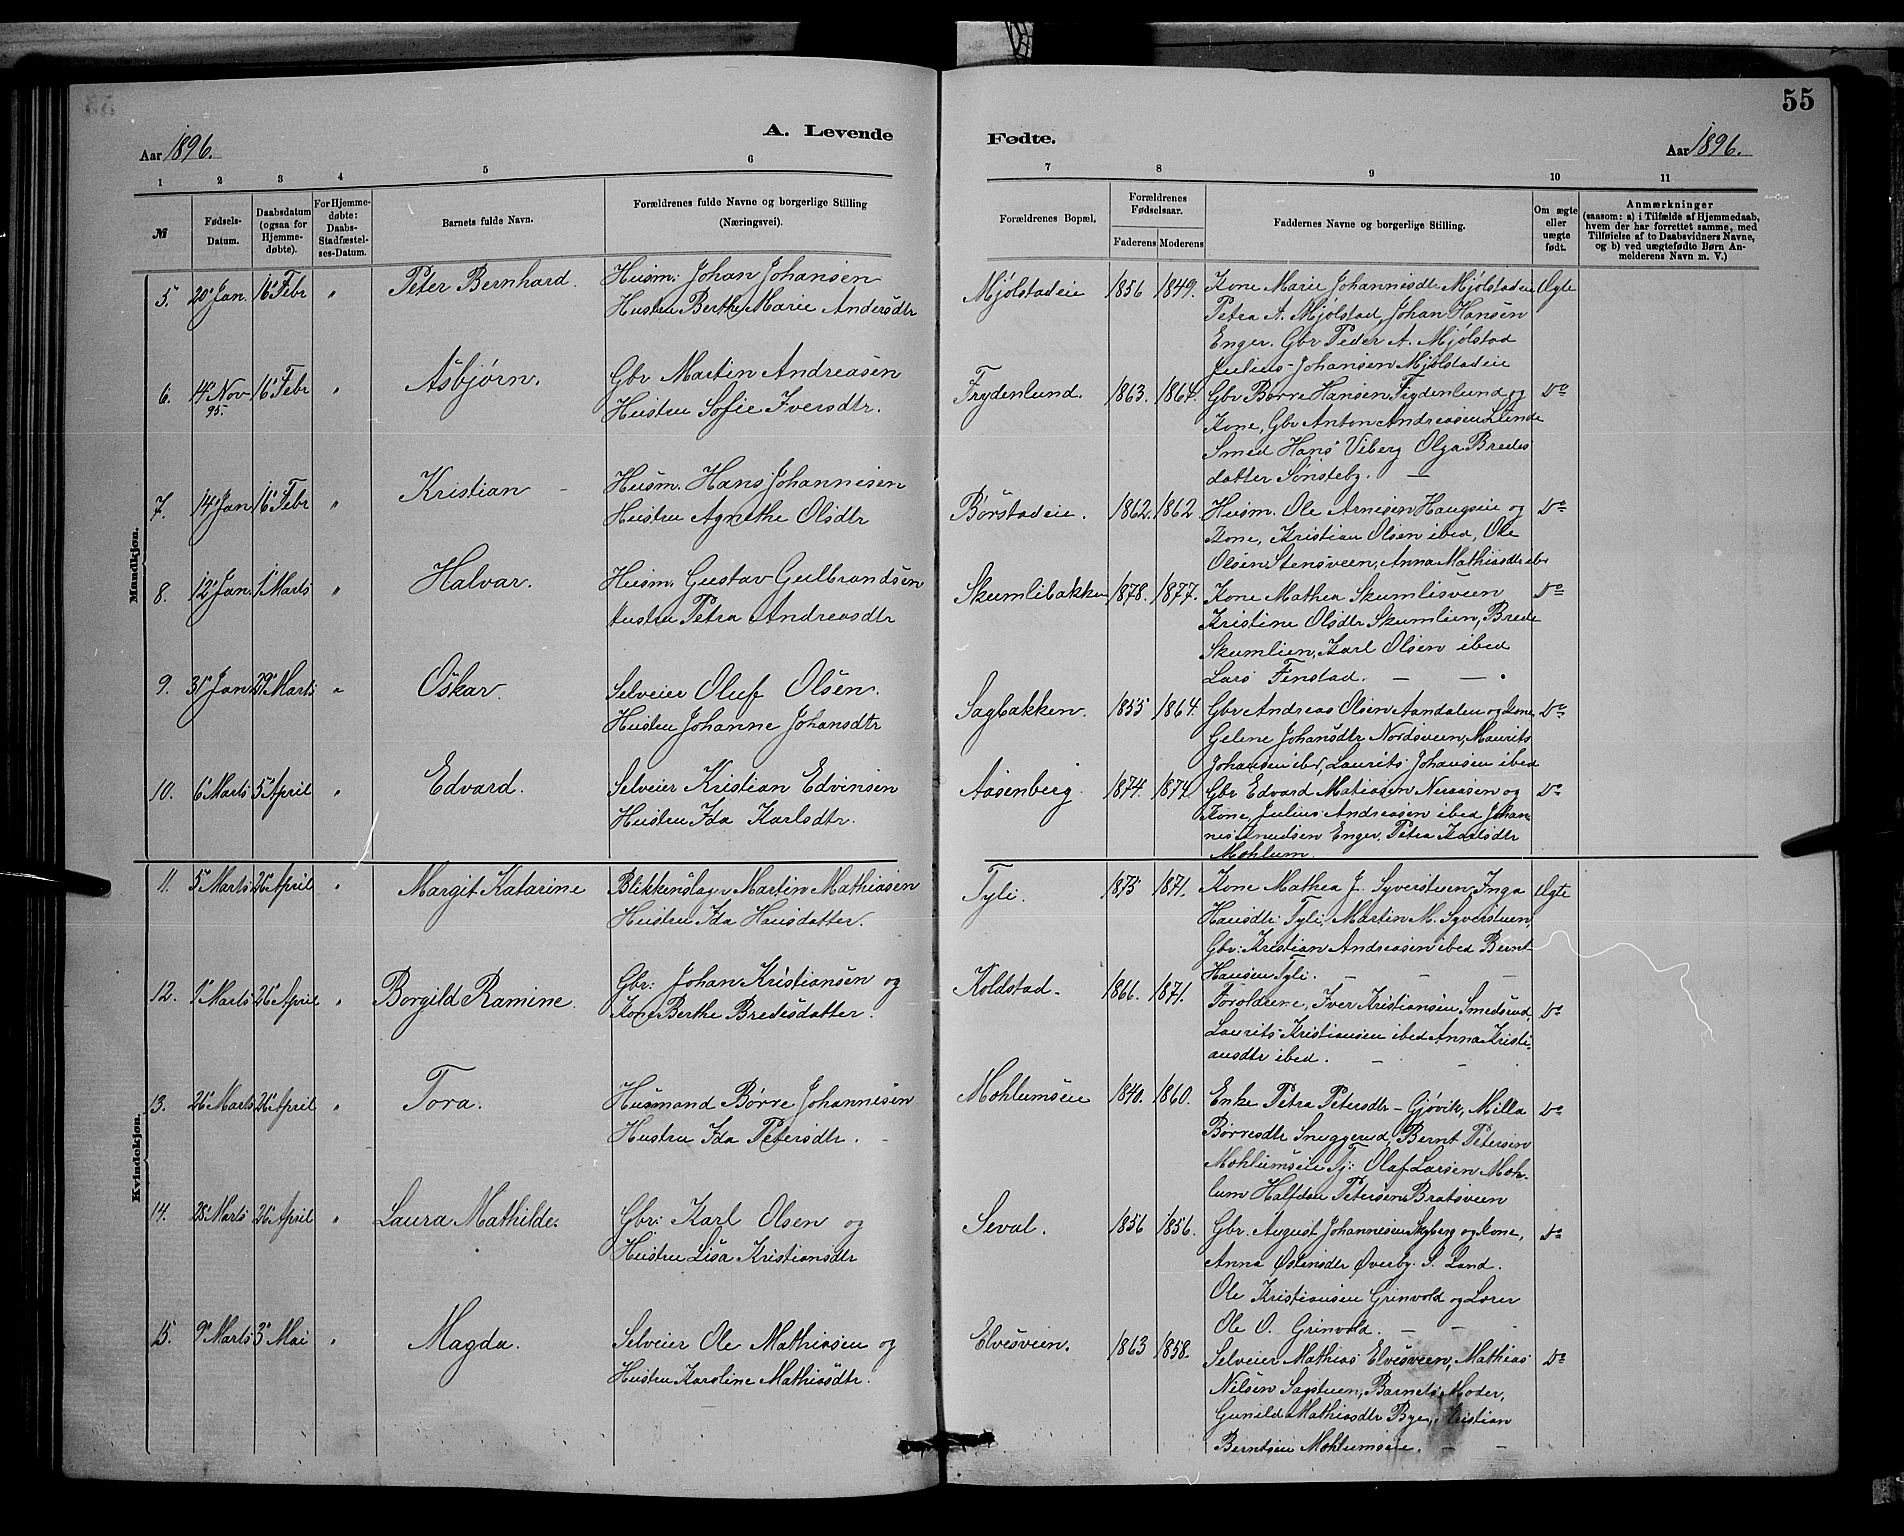 55
A. Levende Fødte.
Aar 1896. Aar 1896.
1 2 3 4 5 6 7 8 9 10 11
№
Fødsels-Datum.
Daabsdatum (ogsaa for Hjemmedøbte).
For Hjemmedøbte: Daabs-Stadfæstelses-Datum.
Barnets fulde Navn.
Forældrenes fulde Navne og borgerlige Stilling (Næringsvei).
Forældrenes Bopæl.
Forældrenes Fødselsaar.
Faderens Moderens
Faddernes Navne og borgerlige Stilling.
Om ægte eller uægte født.
Anmærkninger (saasom: a) i Tilfælde af Hjemmedaab, hvem der har forrettet samme, med Tilføielse af to Daabsvidners Navne, og b) ved uægtefødte Børn Anmelderens Navn m. V.)
Mandkjøn.
5. 20 Jan. 16 Febr " Peter Bernhard. Husm: Johan Johansen
Hustru Berthe Marie Andersdtr
Mjølstadeie 1856 1849. Kone Marie Johannesdtr Mjølstadeie Ægte
Petra A. Mjølstad, Johan Hansen
Enger. Gbr Peder A. Mjølstad
Julius Johansen Mjølstadeie
6. 14 Nov 95. 16 Febr " Asbjørn. Gbr Martin Andreasen
Hustru Sofie Iversdtr.
Frydenlund. 1863. 1864. Gbr Børre Hansen Frydenlund og Do
Kone, Gbr Anton Andreasen Lunde
Smed Hans Viberg Olga Bredes
datter Sønsteby. —
7. 14 Jan 16 Febr " Kristian – Husm. Hans Johannesen
Hustru Agnethe Olsdtr
Børstadeie. 1862. 1862 Husm. Ole Arnesen Haugseie og Do
Kone, Kristian Olsen ibed, Ole
Olsen Stensveen, Anna Mathiasdtr ibd
8. 12 Jan. 1 Marts " Halvar. Husm. Gustav Gulbrandsen
Hustru Petra Andreasdtr
Skumlibakken 1878. 1877. Kone Mathea Skumlisveen Do
Kristine Olsdtr Skumlien, Brede
Skumlien, Karl Olsen ibed
Lars Finstad. — —
9. 31 Jan 29 Marts " Oskar. Selveier Oluf Olsen.
Hustru Johanne Johansdtr
Sagbakken. 1855 1864. Gbr Andreas Olsen Aandalen og Kone Do
Gelene Johansdtr Nordsveen, Maurits
Johansen ibd, Laurits Johansen ibed
10. 6 Marts 5 April " Edvard. Selveier Kristian Edvinsen
Hustru Ida Karlsdtr.
Aasenberg. 1874. 1874 Gbr Edvard Matiasen Neraasen og Do
Kone, Julius Andreasen ibed Johan-
nes Knudsen Enger, Petra Karlsdtr
Mohlum.
Kvindekjøn.
11. 5 Marts 26 April " Margit Katarine Blikkenslag: Martin Mathiasen
Hustru Ida Hansdatter.
Tyli. 1875 1871. Kone Mathea J. Syverstuen, Inga Ægte
Hansdtr: Tyli, Martin M. Syverstuen,
Gbr: Kristian Andreasen ibed Bernt
Hansen Tyli. — — —
12. 1 Marts 26 April " Borgild Ramine. Gbr: Johan Kristiansen og
Kone Berthe Bredesdatter.
Koldstad. 1866. 1871. Forældrene, Iver Kristiansen Smedsrud Do
Laurits Kristiansen ibed Anna Kristi-
ansdtr ibed. — —
13. 26 Marts 26 April " Tora. Husmand Børre Johannesen
Hustru Ida Petersdtr. –
Mohlumseie 1840. 1860. Enke Petra Petersdtr – Gjøvik, Milla Do
Børresdtr Snuggerud, Bernt Petersen
Mohlumseie Tj: Olaf Larsen Moh-
lum Halfdan Petersen Bratsveen
14. 28 Marts 26 April " Laura Mathilde. Gbr: Karl Olsen og
Hustru Lisa Kristiansdtr
Seval. 1856 1856. Gbr. August Johannesen Skyberg og Kone, Do
Anna Østensdtr Øverby. S. Land.
Ole Kristiansen Grinvold og Lærer
Ole O. Grinvold. — —
15. 9 Marts 3 Mai " Magda. Selveier Ole Mathiasen og
Hustru Karoline Mathiasdtr.
Elvesveen. 1863 1858. Selveier Mathias Elvesveen, Mathias Do
Nilsen Sagstuen, Barnets Moder,
Gunild Mathiasdtr Bye, Kristian
Berntsen Mohlumseie. — —